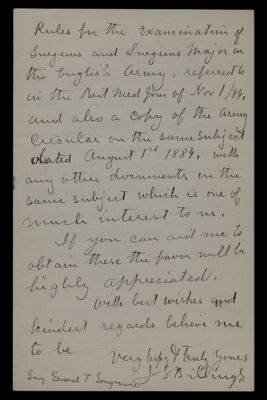 Rules for the Examination of
Surgeons and Surgeons Major in
the English Army, referred to
in the Brit Med Jour of Nov 1/84,
and also a copy of the Army
Circular on the same subject
dated August 1st 1884, with
any other documents on the
same subject which is one of
much interest to us.
If you can aid me to
obtain these the favor will be
highly appreciated.
With best wishes and
kindest regards believe me
to be
Very resp & truly Yours
J S Billings
Surg General T Longmore